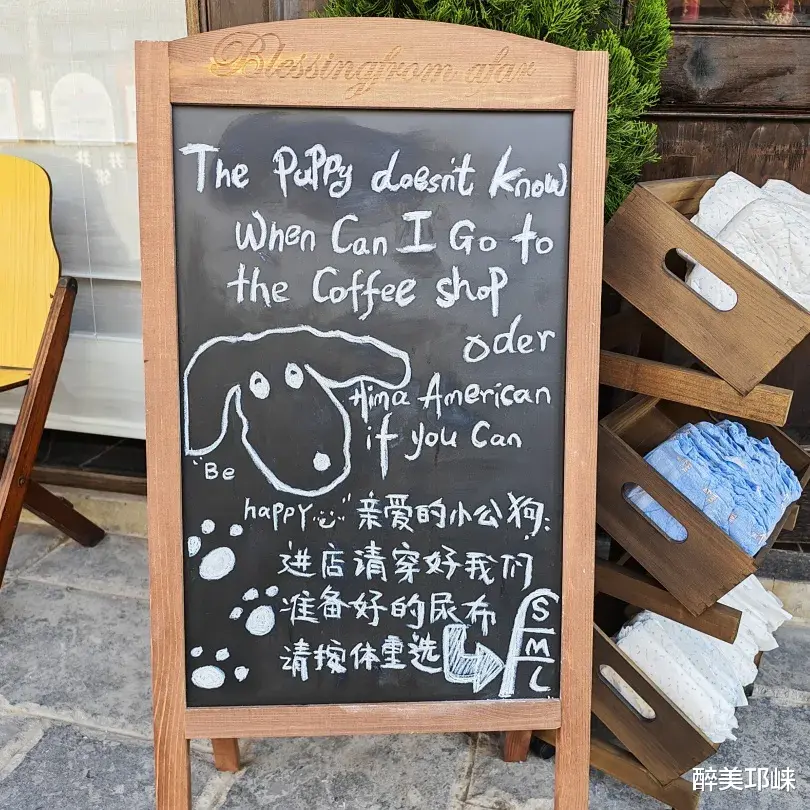 Blessingfrom afar
The Puppy doesn't know
When Can I Go to
the Coffee shop
oder
Hima American
if you Can
"Be
happy"
亲爱的小公狗:
进店请穿好我们
准备好的尿布
请按体重选
S
M
L
醉美邛崃